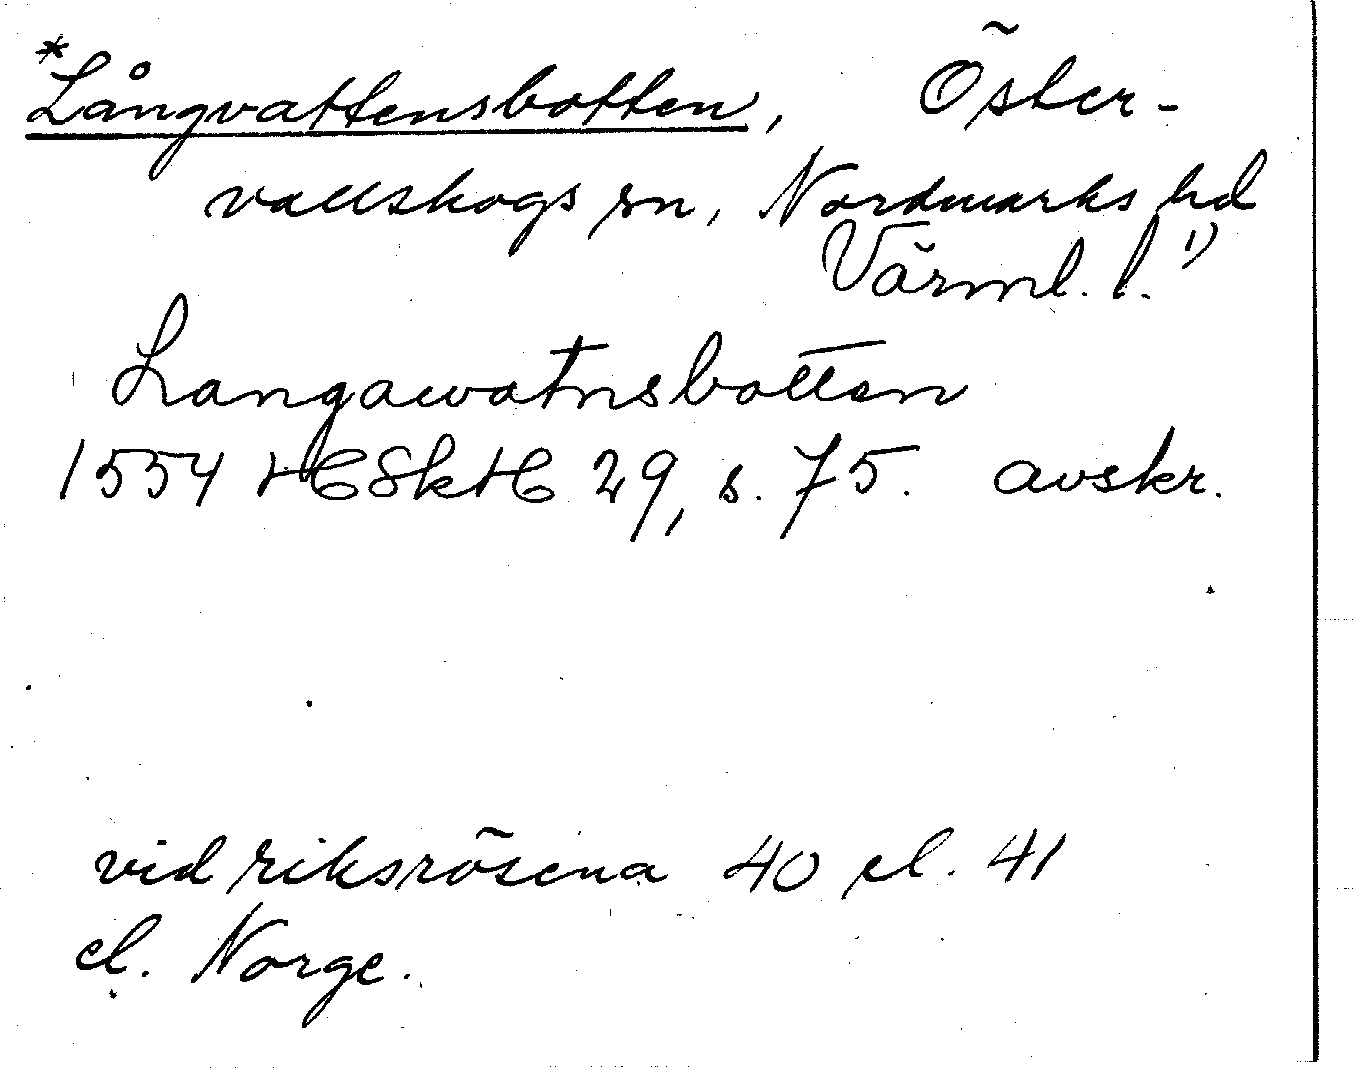 *Långvattensbotten, Öster-
vallskogs sn, Nordmarks hd
Värml. l. 1)
Langawatnsbotten
1554 HCSkHC 29, s. 75. avskr.
vid riksrösena 40 el. 41
el. Norge.